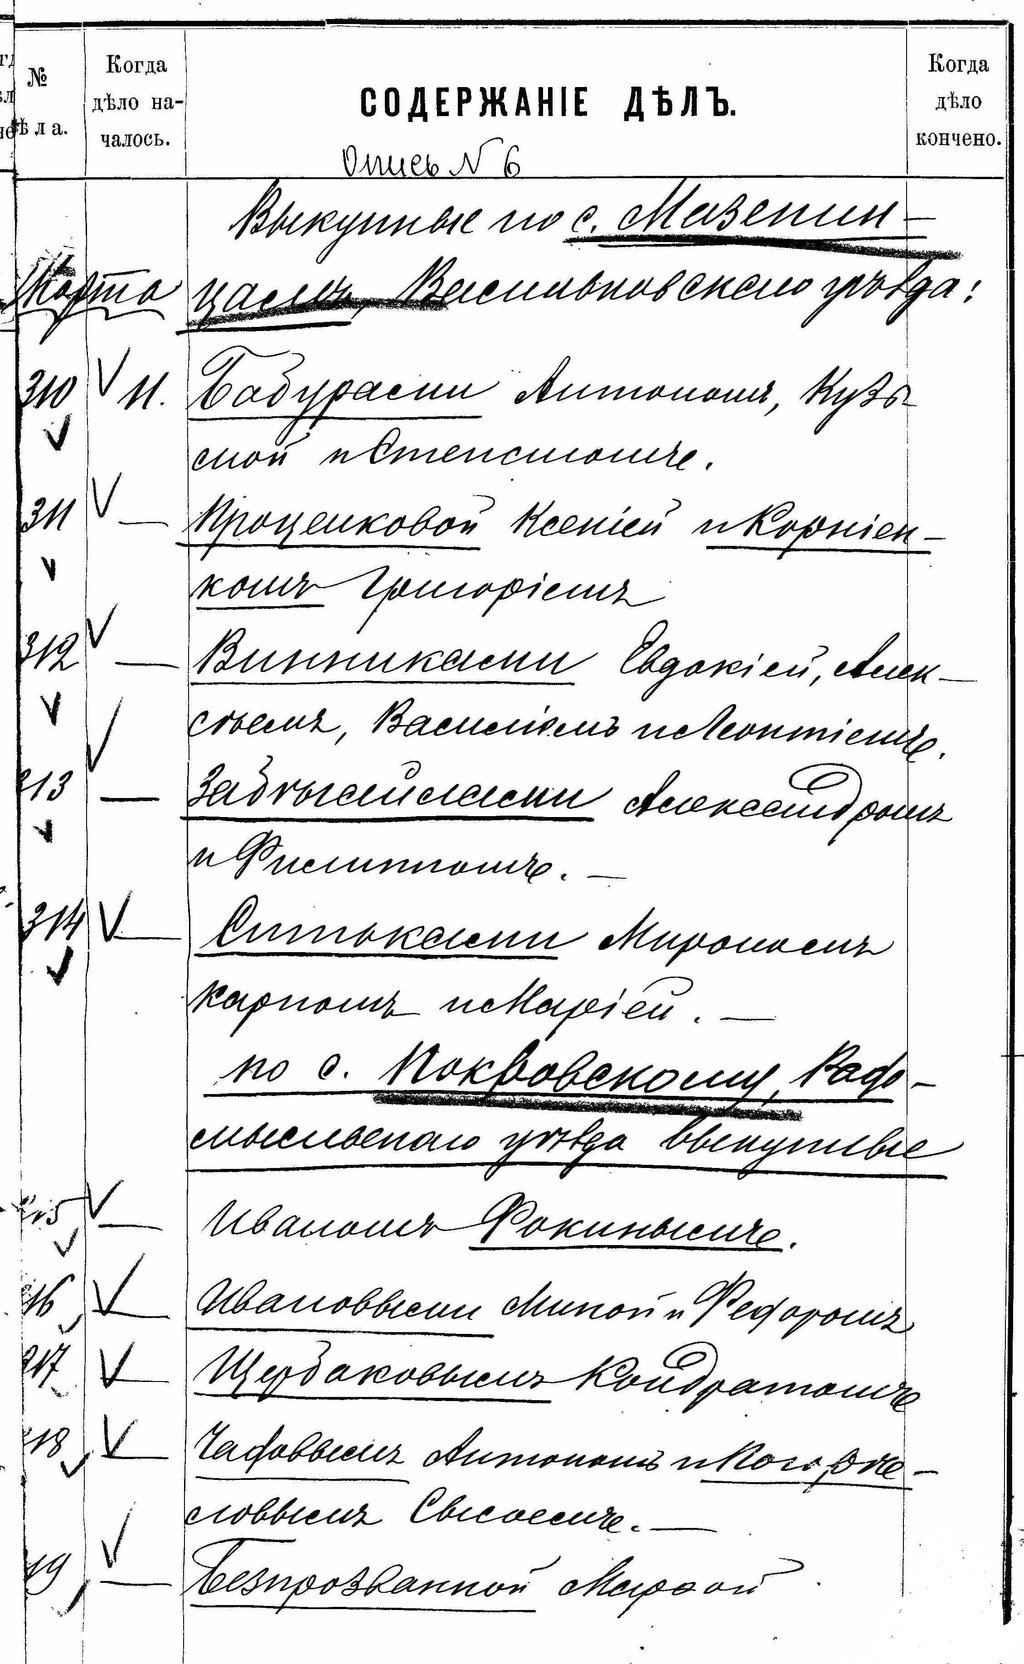 №
ѣла.
Когда
дѣло на-
чалось.
СОДЕРЖАНІЕ ДѢЛЪ.
Когда
дѣло
кончено.
Опись N 6
Выкупные по с. Мазепин-
Марта цамъ, Васильковскаго уѣзда:
310 11. Бабурами Антономъ, Кузь-
мой и Степаномъ.
311 — Проценковой Ксеніей и Корніен-
комъ Григоріемъ
312 — Винниками Евдокіей, Алек-
сѣемъ, Василіемъ и Леонтіемъ.
313 — Александромъ
и Филиппомъ. —
314 — Ситьками Мирономъ
Карпомъ и Маріей. —
по с. Покровскому, Радо-
мысльскаго уѣзда выкупные
315 — Иваномъ Фокинымъ.
316 — Ивановыми Миной и Федоромъ
317 — Щербаковымъ Кондратомъ
318 — Антономъ и
Сысоемъ. —
19 — Безпрозванной Марфой